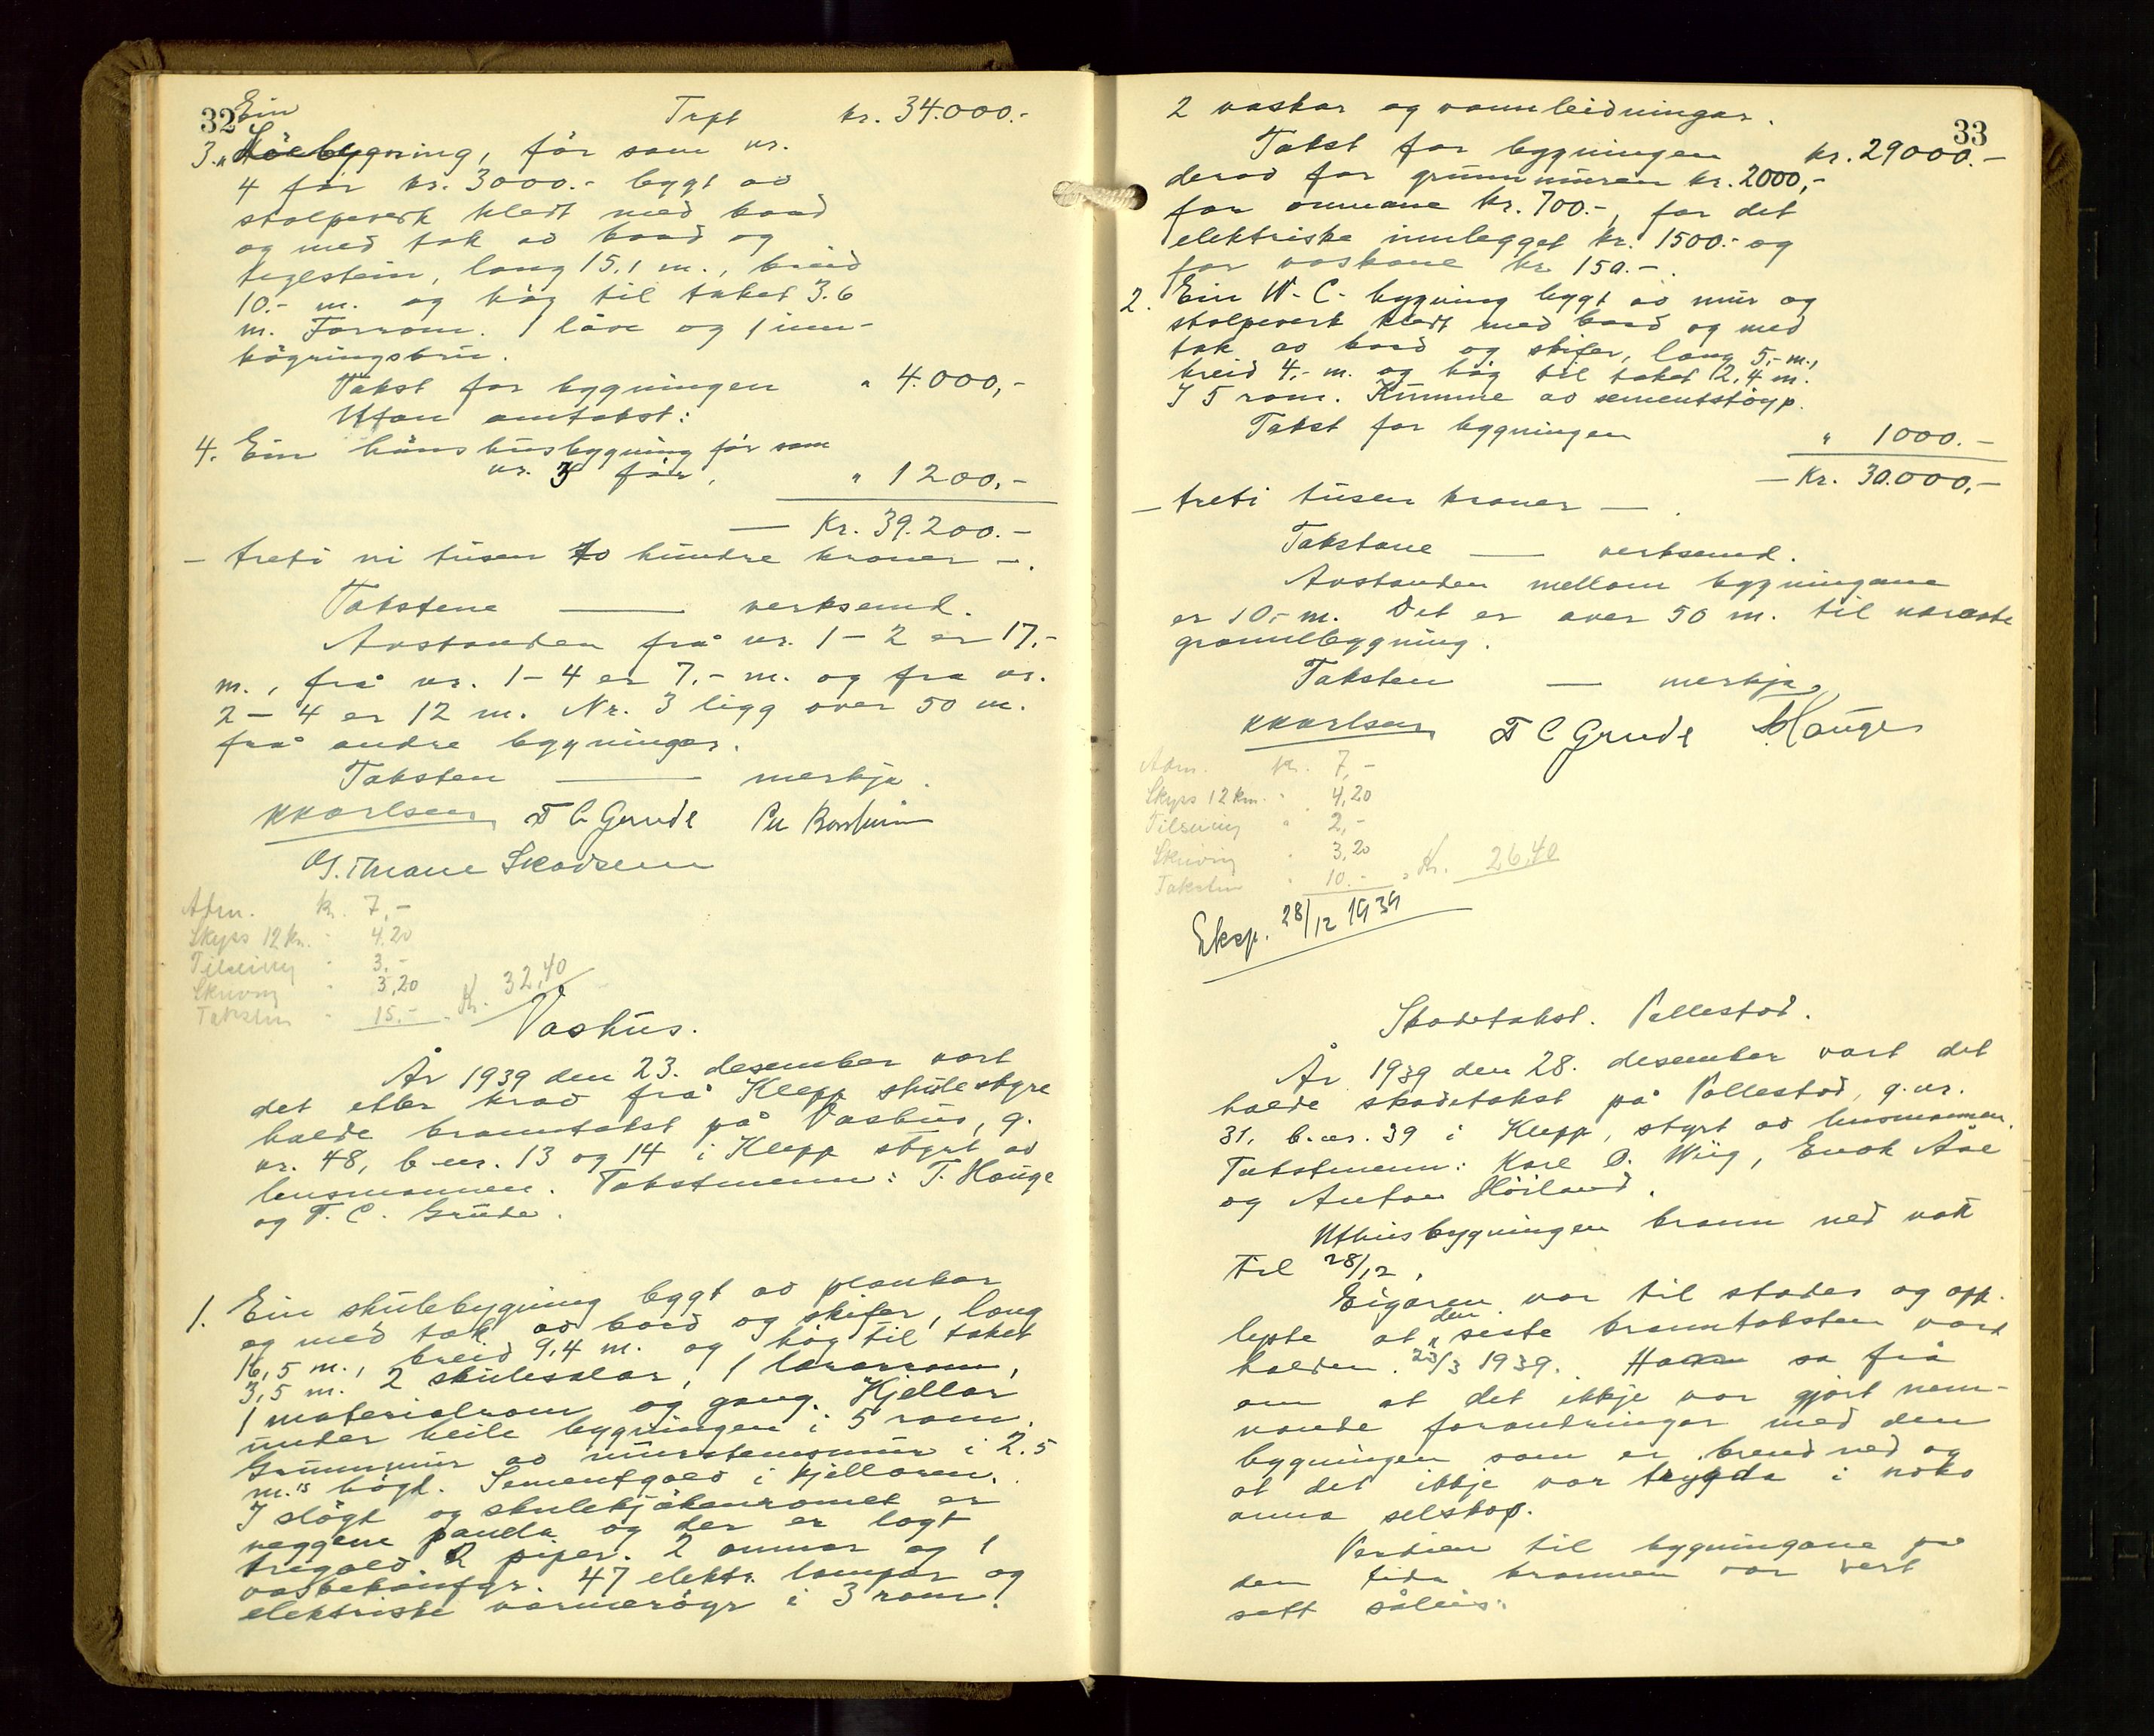 32
Ein Trpt kr. 34.000.-
3. Löebygning, før som nr.
4 før kr. 3000.- bygt av
stolpeverk kledt med bord
og med tak av bord og
teglstein, lang 15,1 m., breid
10.- m. og høg til taket 3.6
m. Forrom. 1 låve og 1 inn-
køyringsbru.
Takst for bygningen " 4.000,-
Utan omtakst:
4. Ein hønshusbygning før som
nr. 3 før, " 1200,-
— Kr. 39.200.-
- treti ni tusen to hundre kroner -.
Takstene — verksemd.
Avstanden frå nr. 1-2 er 17,-
m., frå nr. 1-4 er 7,- m. og fra nr.
2-4 er 12 m. Nr. 3 ligg over 50 m.
frå andre bygningar.
Taksten — merkja.
KKarlsen T C Grude
G. Tmane Skadsem
Adm. kr. 7,-
Skyss 12 km. " 4,20
Tilsening " 3,-
Skriving " 3,20
Takstm " 15.- = Kr. 32,40
Vashus.
År 1939 den 23. desember vart
det etter krav frå Klepp skulestyre
halde branntakst på Vashus, g.
nr. 48, b.nr. 13 og 14 i Klepp styrt av
lensmannen. Takstmenn: T. Hauge
og T. C. Grude.
1. Ein skulebygning bygt av plankar
og med tak av bord og skifer, lang
16,5 m., breid 9,4 m. og høg til taket
3,5 m. 2 skulesalar, 1 lærarrom,
1 materialrom og gang. Kjellar
under heile bygningen i 5 rom.
Grunnmur av murstensmur i 2.5
m.'s høgd. Sementgolv i kjellaren.
I sløgd og skulekjøkenromet er
veggene panela og der er lagt
tregolv. 2 piper. 2 omnar og 1
vaskekomfyr. 47 elektr. lampar og
elektriske varmerøyr i 3 rom.
33
2 vaskar og vannleidningar.
Takst for bygningen kr. 29000.-
derav for grunnmuren kr. 2000,-
for omnane kr. 700.-, for det
elektriske innlegget kr. 1500.- og
for vaskane kr. 150.-.
2. Ein W.C. bygning bygt av mur og
stolpeverk kledt med bord og med
tak av bord og skifer, lang 5,- m.,
breid 4,- m. og høg til taket 2,4 m.
I 5 rom. Kumme av sementstøyp.
Takst for bygningen " 1000.-
— Kr. 30.000,-
- treti tusen kroner -.
Takstane — verksemd.
Avstanden mellom bygningane
er 10,- m. Det er over 50 m. til næraste
grannebygning.
Taksten — merkja.
KKarlsen T C Grude T Hauge
Adm. kr. 7,-
Skyss 12 km. " 4,20
Tilsening " 2,-
Skriving " 3,20
Takstm " 10.- = Kr. 26,40
Eksp. 28/12 1939
Skadetakst. Pallestad.
År 1939 den 28. desember vart det
halde skadetakst på Pallestad, g.nr.
31, b.nr. 39 i Klepp, styrt av lensmannen.
Takstmenn: Karl O. Wiig, Enok Åse
og Anton Höiland.
Uthusbygningen brann ned natt
til 28/12.
Eigaren var til stades og opp-
lyste at den siste branntaksten vart
halden 23/3 1939. Han sa frå
om at det ikkje var gjort nem-
nande forandringar med den
bygningen som er brend ned og
at det ikkje var trygda i noko
anna selskap.
Verdien til bygningane på
den tida brannen var vert
sett såleis: